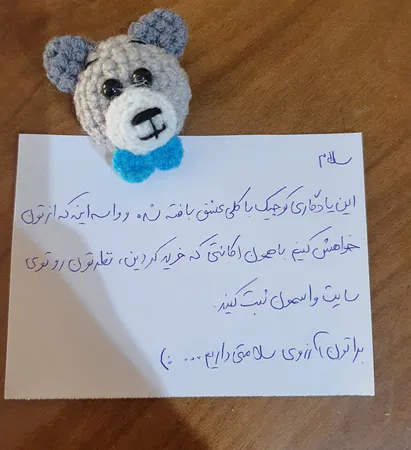 سلام
این یادگاری کوچیک با کلی عشق بافته شده و واسه اینه که ازتون
خواهش کنیم با همون اکانتی که خرید کردین، نظرتون رو توی
سایت واسمون ثبت کنید.
براتون آرزوی سلامتی داریم... :)